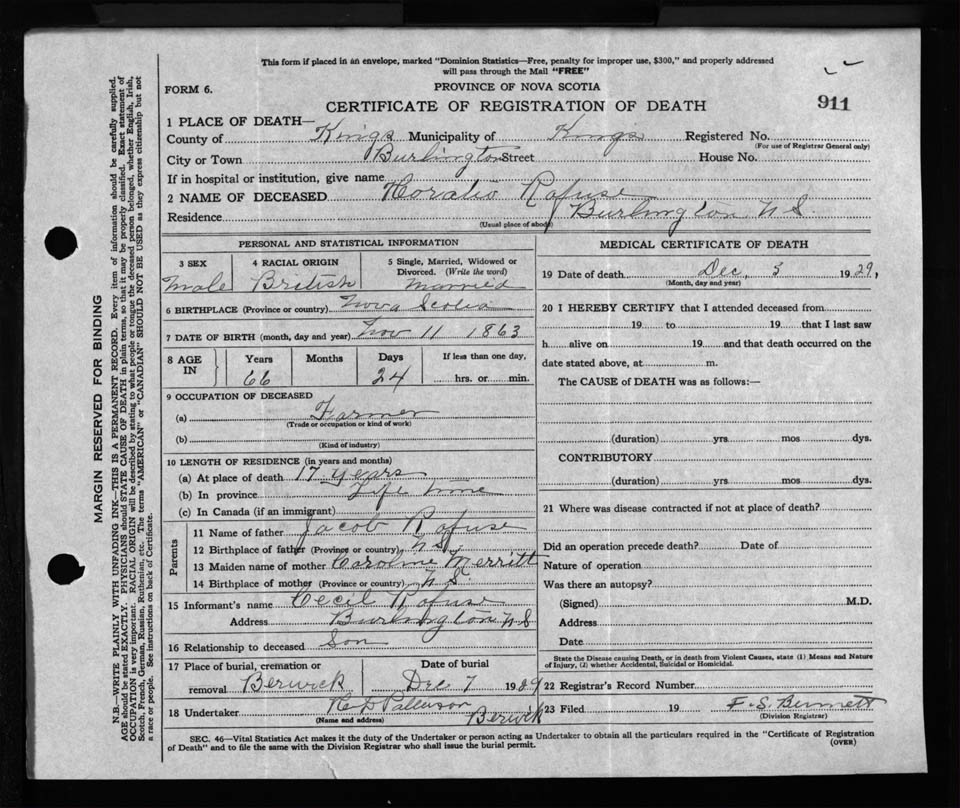 This form if placed in an envelope, marked "Dominion Statistics—Free, penalty for improper use, $300," and properly addressed
will pass through the Mail "FREE"
FORM 6.
PROVINCE OF NOVA SCOTIA
CERTIFICATE OF REGISTRATION OF DEATH
911
1 PLACE OF DEATH—
County of Kings Municipality of Kings Registered No.
(For use of Registrar General only)
City or Town Burlington Street House No.
If in hospital or institution, give name
2 NAME OF DECEASED Horatio Rafuse
Residence Burlington N S
(Usual place of abode)
PERSONAL AND STATISTICAL INFORMATION
3 SEX 4 RACIAL ORIGIN 5 Single, Married, Widowed or
Divorced. (Write the word)
Male British Married
6 BIRTHPLACE (Province or country) Nova Scotia
7 DATE OF BIRTH (month, day and year) Nov 11 1863
8 AGE IN Years Months Days If less than one day,
66 24 hrs. or min.
9 OCCUPATION OF DECEASED
(a) Farmer
(Trade or occupation or kind of work)
(b)
(Kind of industry)
10 LENGTH OF RESIDENCE (in years and months)
(a) At place of death 17 years
(b) In province Life time
(c) In Canada (if an immigrant)
Parents
11 Name of father Jacob Rafuse
12 Birthplace of father (Province or country) N S
13 Maiden name of mother Caroline Merritt
14 Birthplace of mother (Province or country) N S
15 Informant's name Cecil Rafuse
Address Burlington N S
16 Relationship to deceased Son
17 Place of burial, cremation or Date of burial
removal Berwick Dec 7 1929
18 Undertaker Berwick
(Name and address)
MEDICAL CERTIFICATE OF DEATH
19 Date of death Dec, 3 1929,
(Month, day and year)
20 I HEREBY CERTIFY that I attended deceased from
19 to 19 that I last saw
h alive on 19 and that death occurred on the
date stated above, at m.
The CAUSE of DEATH was as follows:—
(duration) yrs mos dys.
CONTRIBUTORY
(duration) yrs mos dys.
21 Where was disease contracted if not at place of death?
Did an operation precede death? Date of
Nature of operation
Was there an autopsy?
(Signed) M.D.
Address
Date
State the Disease causing Death, or in death from Violent Causes, state (1) Means and Nature
of Injury, (2) whether Accidental, Suicidal or Homicidal.
22 Registrar's Record Number
23 Filed 19 F. S. Bennett
(Division Registrar)
SEC. 46—Vital Statistics Act makes it the duty of the Undertaker or person acting as Undertaker to obtain all the particulars required in the "Certificate of Registration
of Death" and to file the same with the Division Registrar who shall issue the burial permit.
(OVER)
MARGIN RESERVED FOR BINDING
N.B.—WRITE PLAINLY WITH UNFADING INK—THIS IS A PERMANENT RECORD. Every item of information should be carefully supplied.
AGE should be stated EXACTLY. PHYSICIANS should STATE CAUSE OF DEATH in plain terms, so that it may be properly classified. Exact statement of
OCCUPATION is very important. RACIAL ORIGIN will be described by stating to what people or tongue the deceased person belonged, whether English, Irish,
Scotch, French, German, Russian, Ruthenian, etc. The terms "AMERICAN" or "CANADIAN" SHOULD NOT BE USED as they express citizenship but not
a race or people. See instructions on back of Certificate.